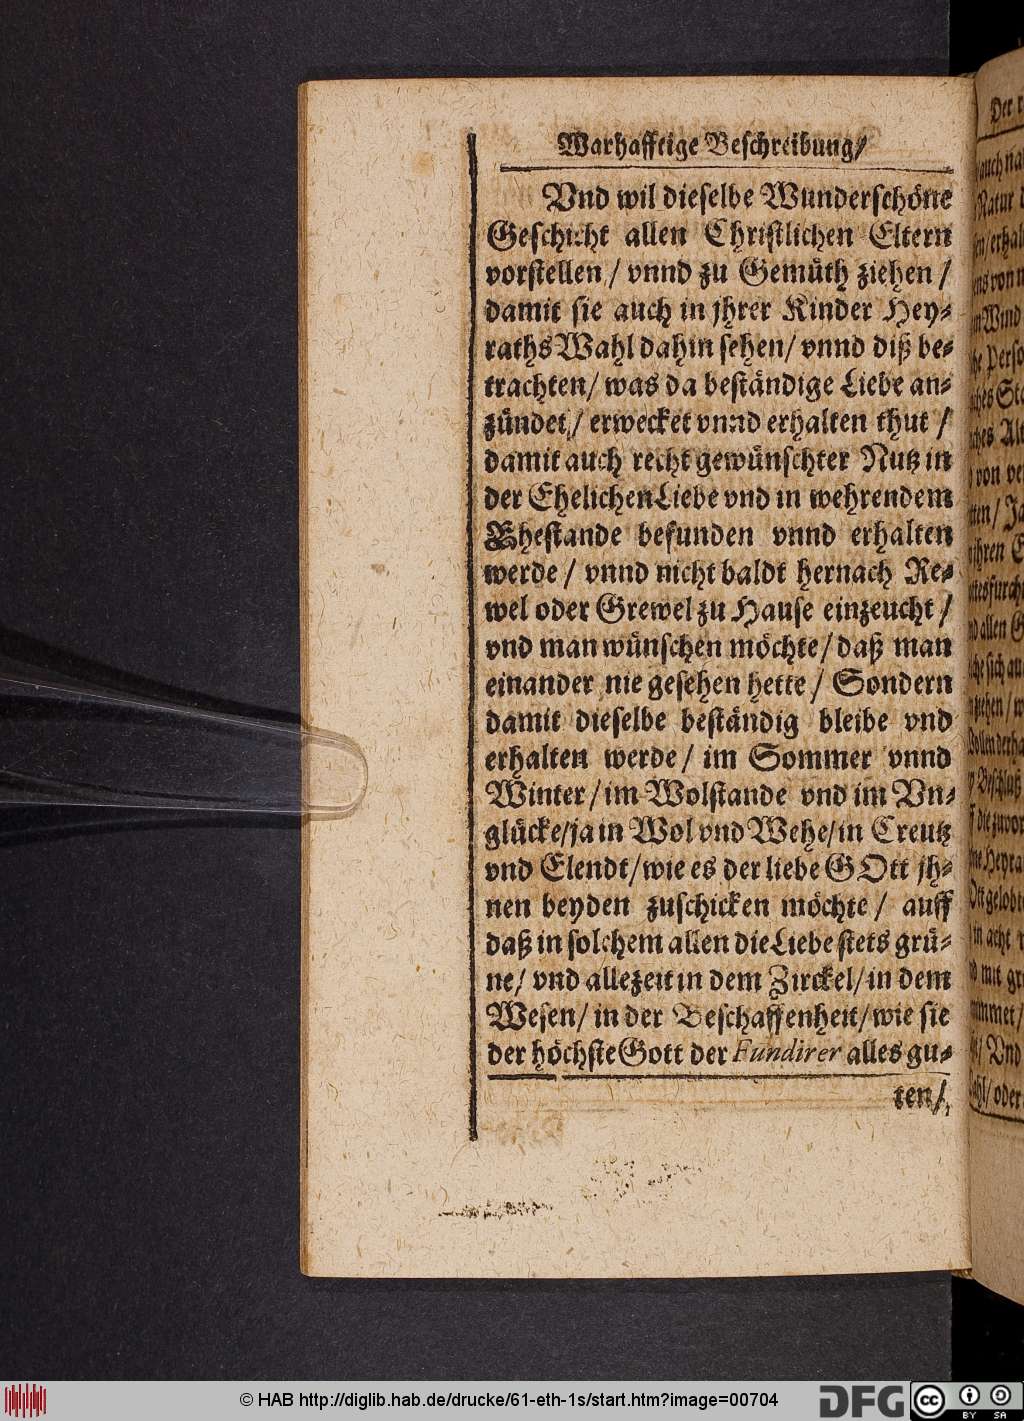 Warhafftige Beschreibung/
Vnd wil dieselbe Wunderschöne
Geschicht allen Christlichen Eltern
vorstellen / vnnd zu Gemüth ziehen /
damit sie auch in jhrer Kinder Hey-
raths Wahl dahin sehen / vnnd diß be-
trachten / was da beständige Liebe an-
zündet / erwecket vnnd erhalten thut /
damit auch recht gewünschter Nutz in
der Ehelichen Liebe vnd in wehrendem
Ehestande befunden vnnd erhalten
werde / vnnd nicht baldt hernach Re-
wel oder Grewel zu Hause einzeucht /
vnd man wünschen möchte / daß man
einander nie gesehen hette / Sondern
damit dieselbe beständig bleibe vnd
erhalten werde / im Sommer vnnd
Winter / im Wolstande vnd im Vn-
glücke / ja in Wol vnd Wehe / in Creutz
vnd Elendt / wie es der liebe GOtt jh-
nen beyden zuschicken möchte / auff
daß in solchem allen die Liebe stets grü-
ne / vnd allezeit in dem Zirckel / in dem
Wesen / in der Beschaffenheit / wie sie
der höchste Gott der Fundirer alles gu-
ten /
© HAB http://diglib.hab.de/drucke/61-eth-1s/start.htm?image=00704
DFG
cc BY SA